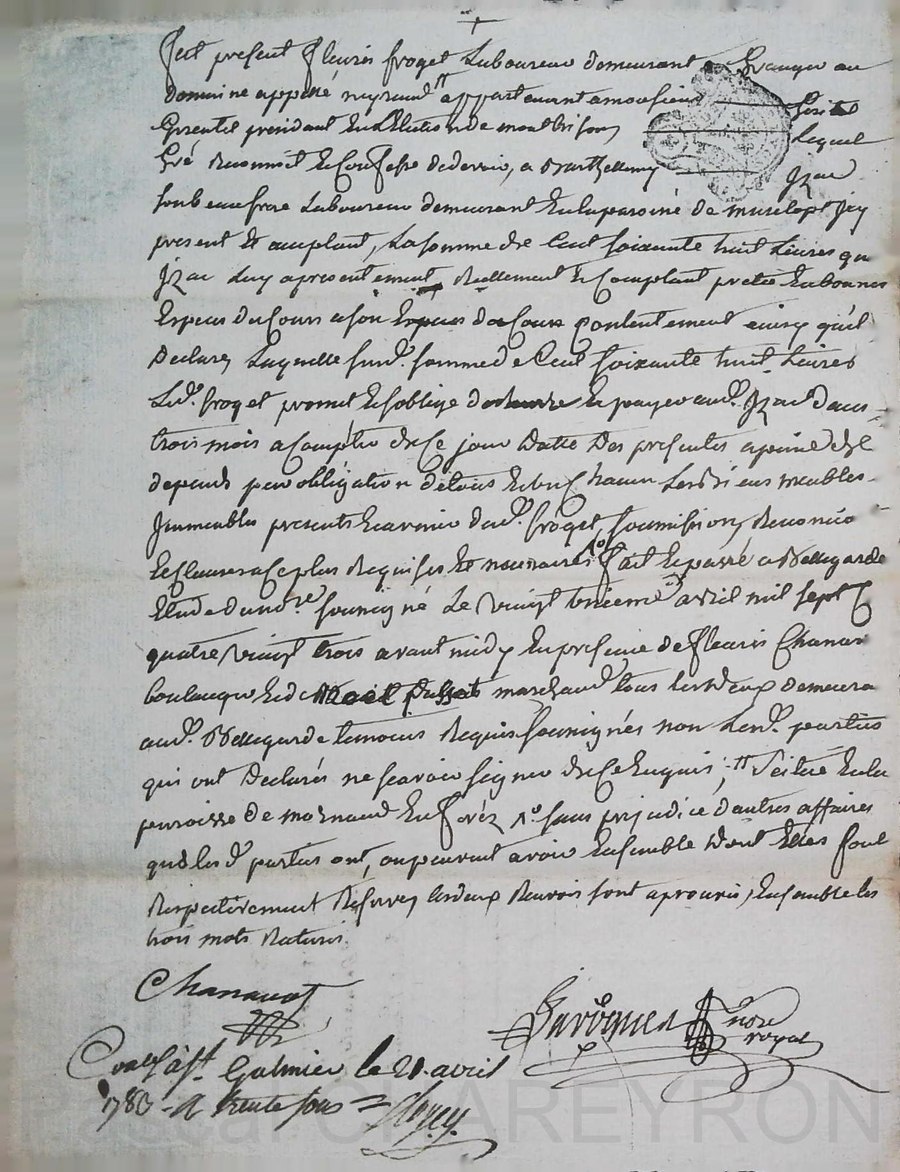 fut present fleuris froget Laboureur demeurant Granger au
domaine appellé appartenant a monsieur
president En L'election de montbrison Lequel
Gré Reconnoit et Confesse de devoir, a Barthellemy Jzac
son beau frere Laboureur demeurant En la paroisse de Icy
present Et acceptant, La somme de Cent soixante huit Livres qu
Jzac Luy a presentement Reellement Et Comptant pretée En bonnes
Especes du Cours a son Especes du Cours Contentement ainsy qu'il
Declare, Laquelle susd. somme de Cent soixante huit Livres
Led. froget promet Et s'oblige de Et payer aud. Jzac dans
trois mois a Compter de Ce jour Datte Des presentes a peine de
depends par obligation de tous Et un Chacun Ses Biens meubles
Immeubles presents Et avenir dud. froget, soumissions,
Et Clauses a Ce plus Requises Et necessaires 1o fait Et passé a Bellegarde
Etude du no.re soussigné Le vingt avril mil sept C
quatre vingt trois avant midy En presence de fleuris Chanavat
boulanger Et de marchand tous Les deux demeura
aud. Bellegarde temoins Requis soussignés non Lesd. parties
qui ont Declarés ne scavoir signer de Ce Enquis, Scitué En la
paroisse de mornand En forêz 1o sans prejudice d'autres affaires
que Les d. parties ont, ou peuvent avoir Ensemble Dont Elles sont
Respectivement Les deux Renvois sont aprouvés, Ensemble les
trois mots Raturés.
Chanavat
no.re
royal
Con.lé à st. Galmier le 21 avril
1783 - R trente sous
Pascal CHAREYRON